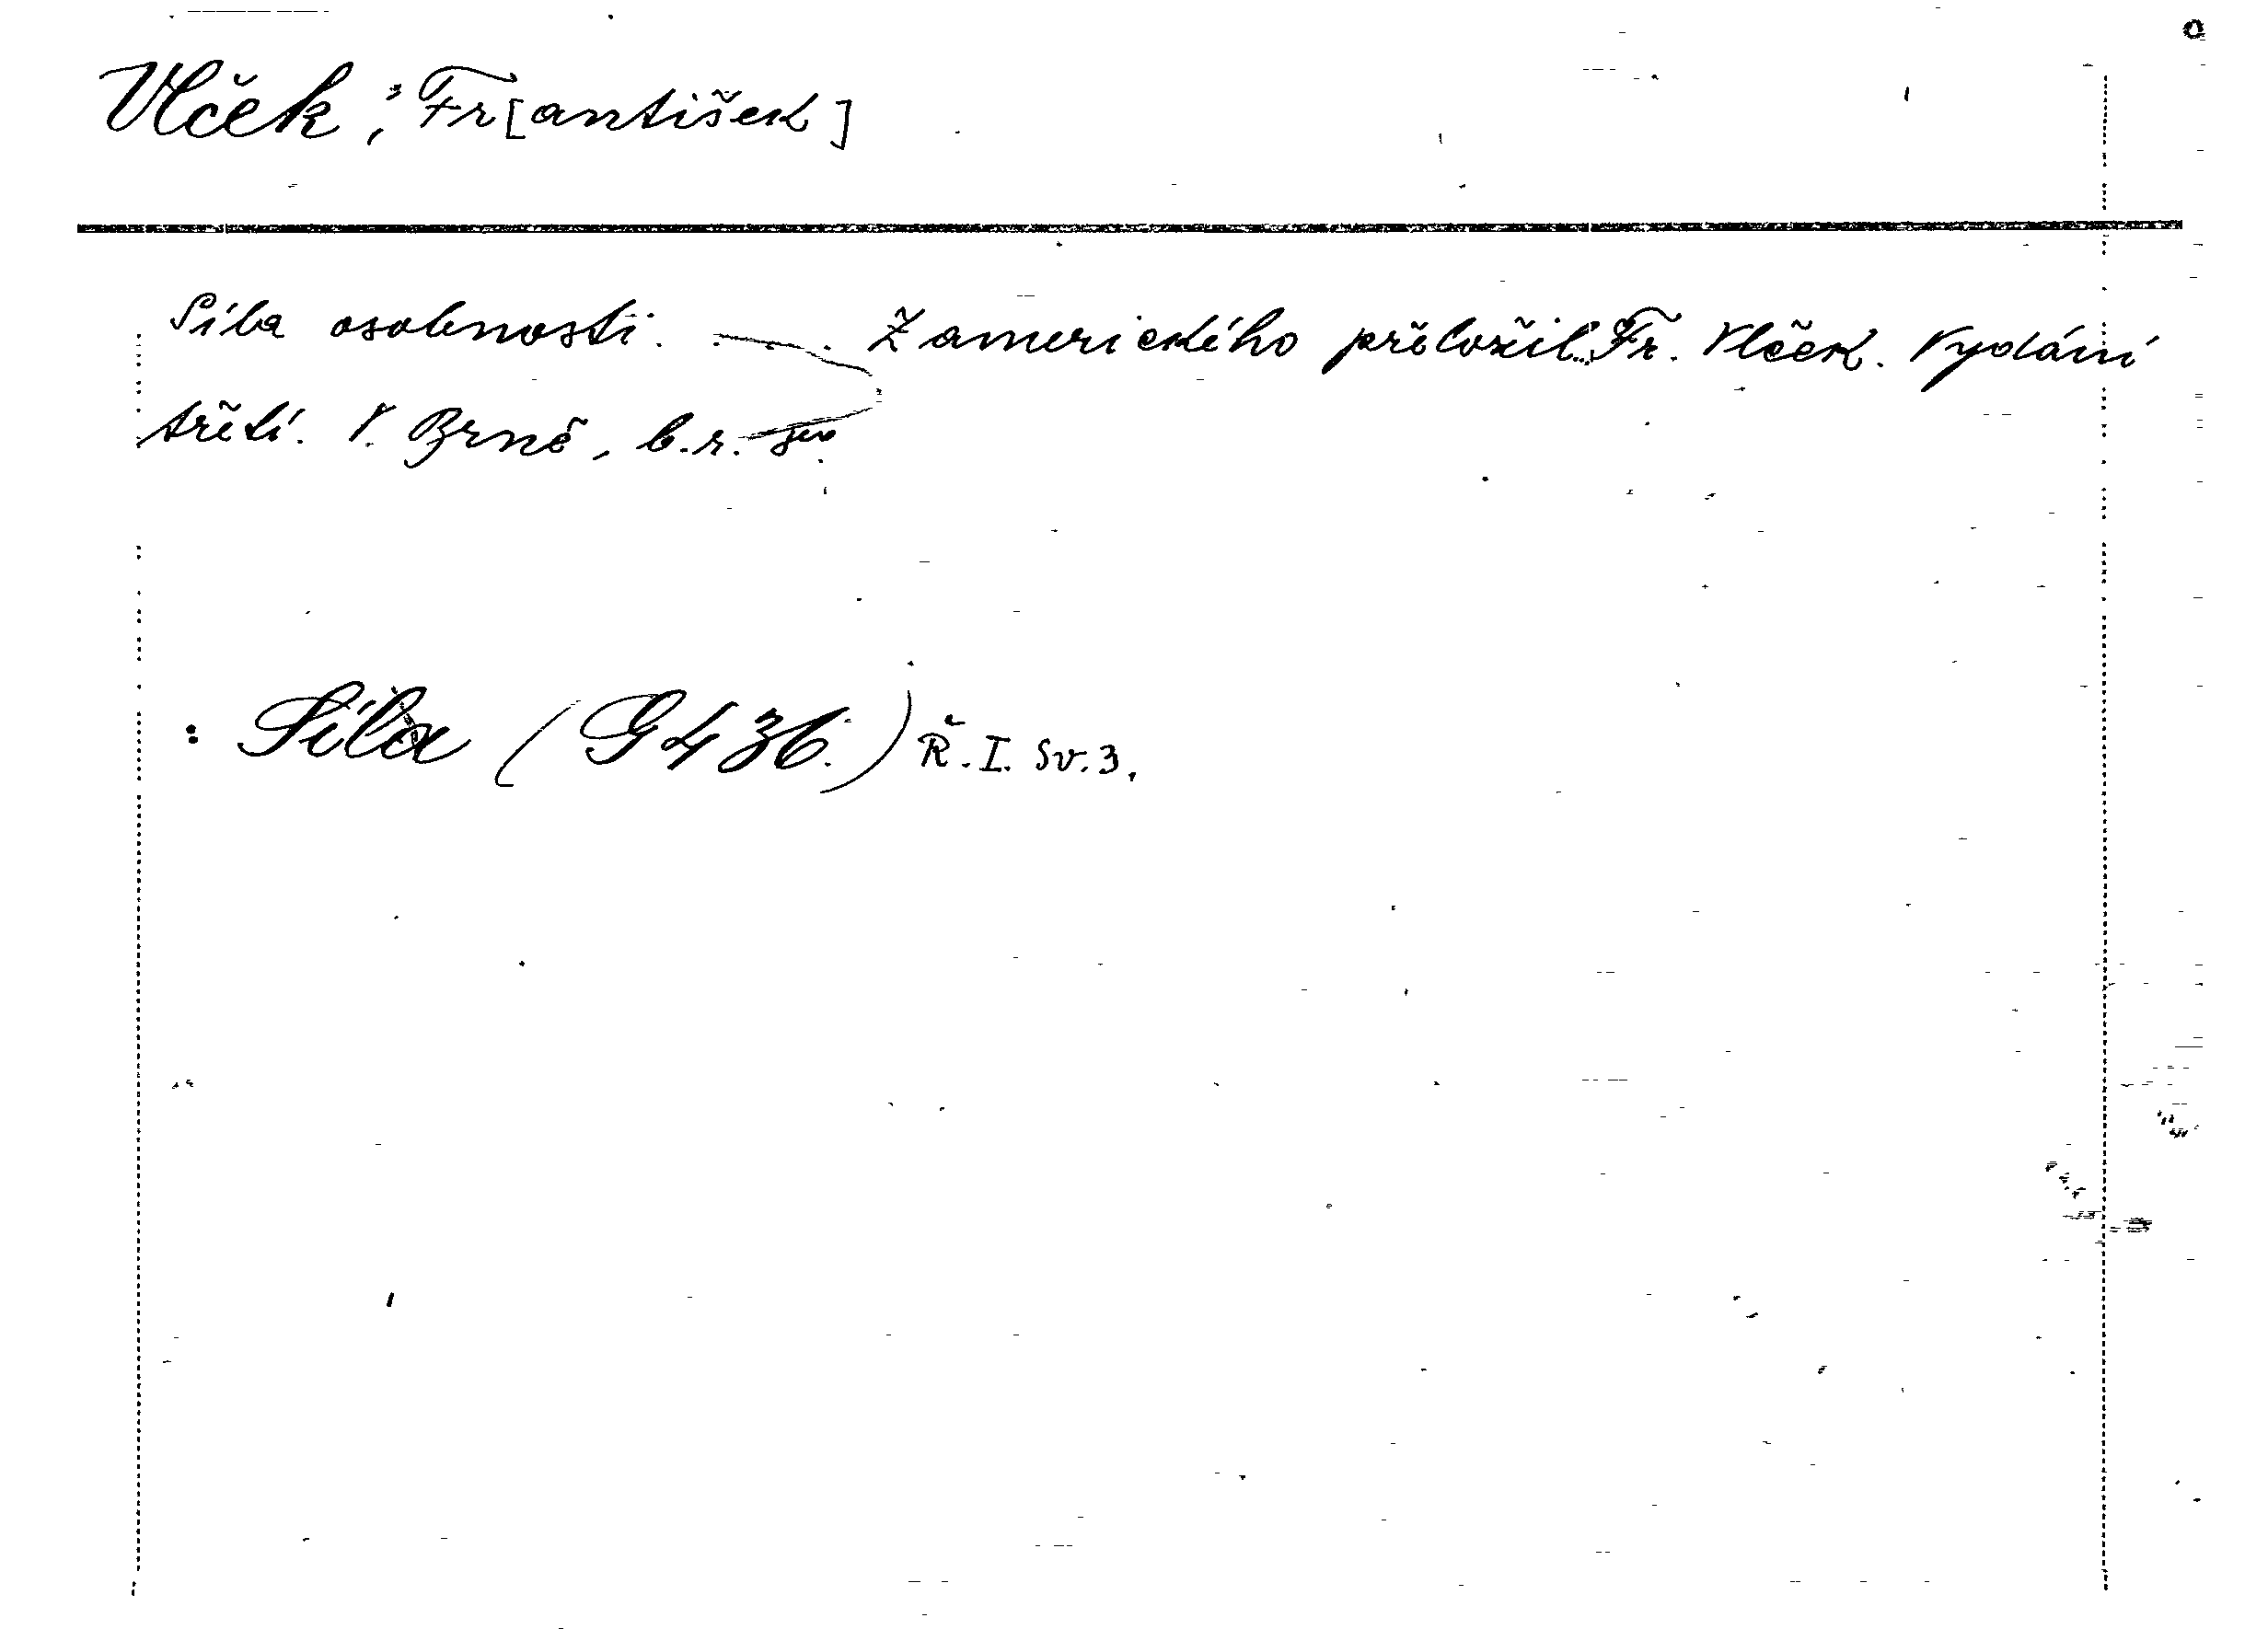 Vlček, Fr[antišek]
Síla osobnosti. . . . Z amerického přeložil Fr. Vlček. Vydání
třetí. V. Brně, b.r.
: Síla (G 436.) Ř. I. Sv. 3.